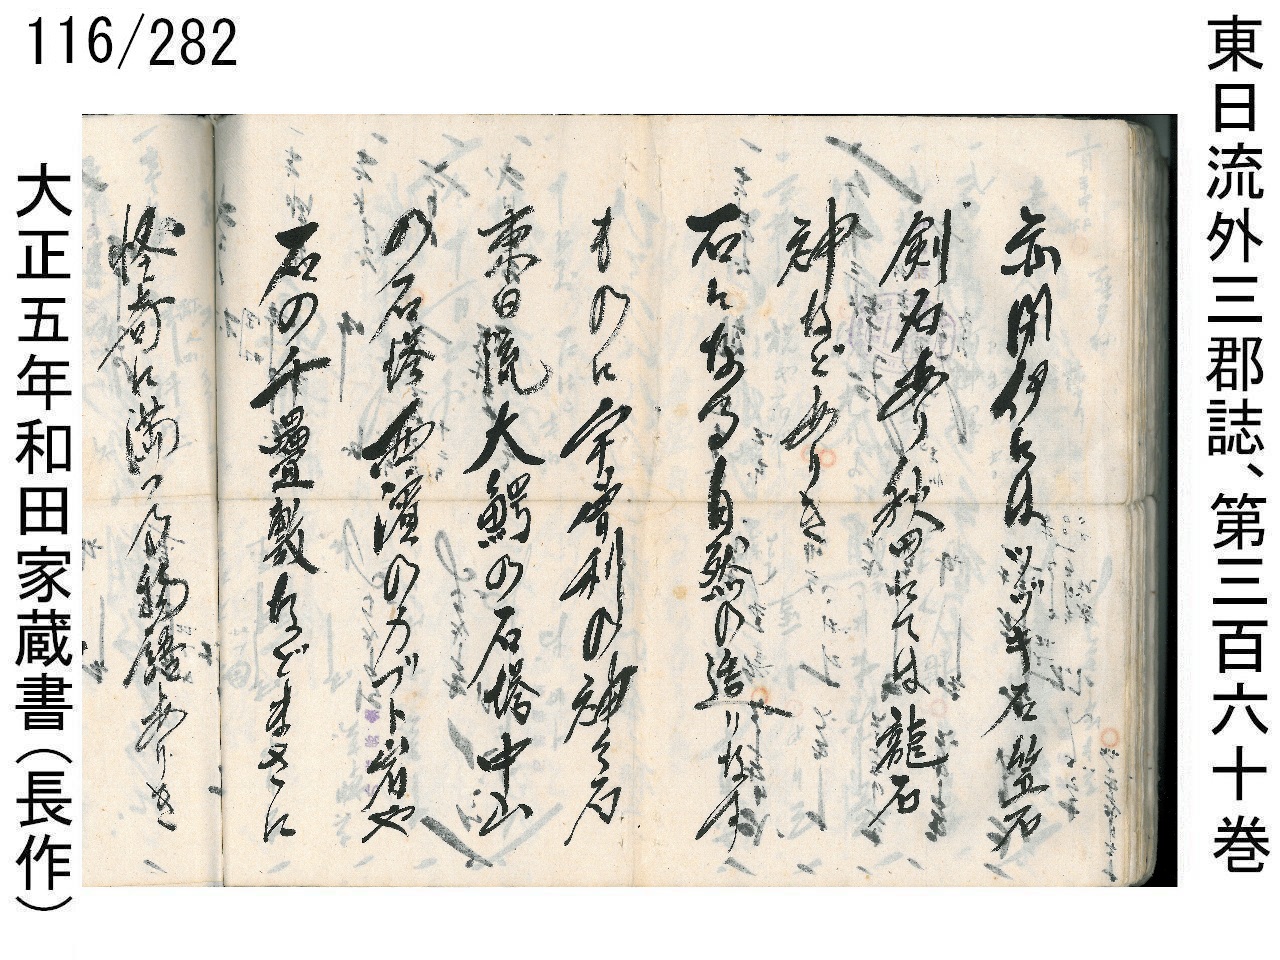 116/282
東日流外三郡誌、第三百六十巻
亦閉伊にはツヅキ石笠石
剣石あり秋田にては龍石
神などありき
石になる自然の造りなす
ものに宇曽利の神々石
東日流大鰐の石塔中山
の石塔西濱のカブト岩や
石の千疊敷などまさに
怪奇に満つる物語ありき
大正五年和田家蔵書(長作)